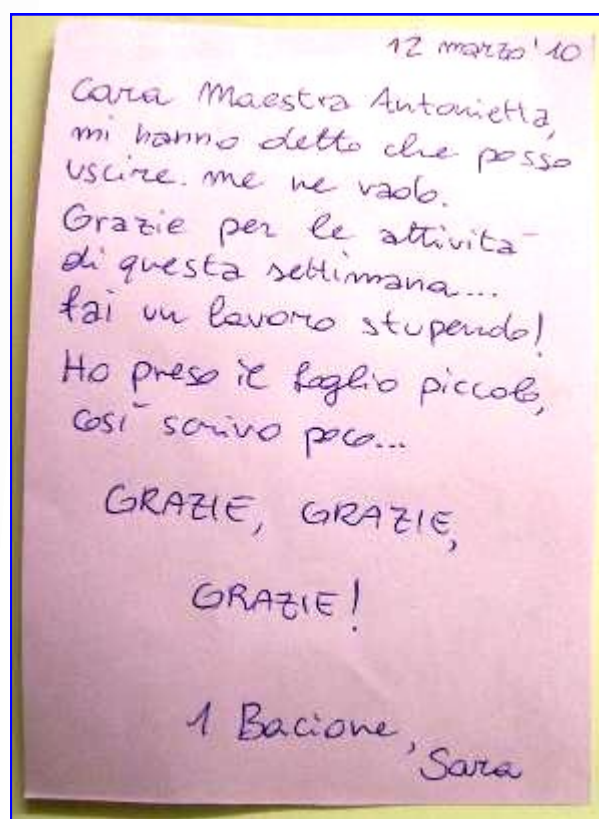 12 marzo '10
Cara Maestra Antonietta,
mi hanno detto che posso
uscire. me ne vado.
Grazie per le attività
di questa settimana...
fai un lavoro stupendo!
Ho preso il foglio piccolo,
così scrivo poco...
GRAZIE, GRAZIE,
GRAZIE!
1 Bacione,
Sara